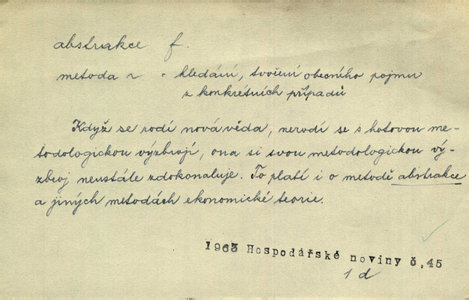 abstrakce f.
metoda ~ - hledání, tvoření obecného pojmu
z konkretních případů
Když se rodí nová věda, nerodí se s hotovou me-
todologickou výzbrojí, ona si svou metodologickou vý-
zbroj neustále zdokonaluje. To platí i o metodě abstrakce
a jiných metodách ekonomické teorie.
1963 Hospodářské noviny č. 45
1 d